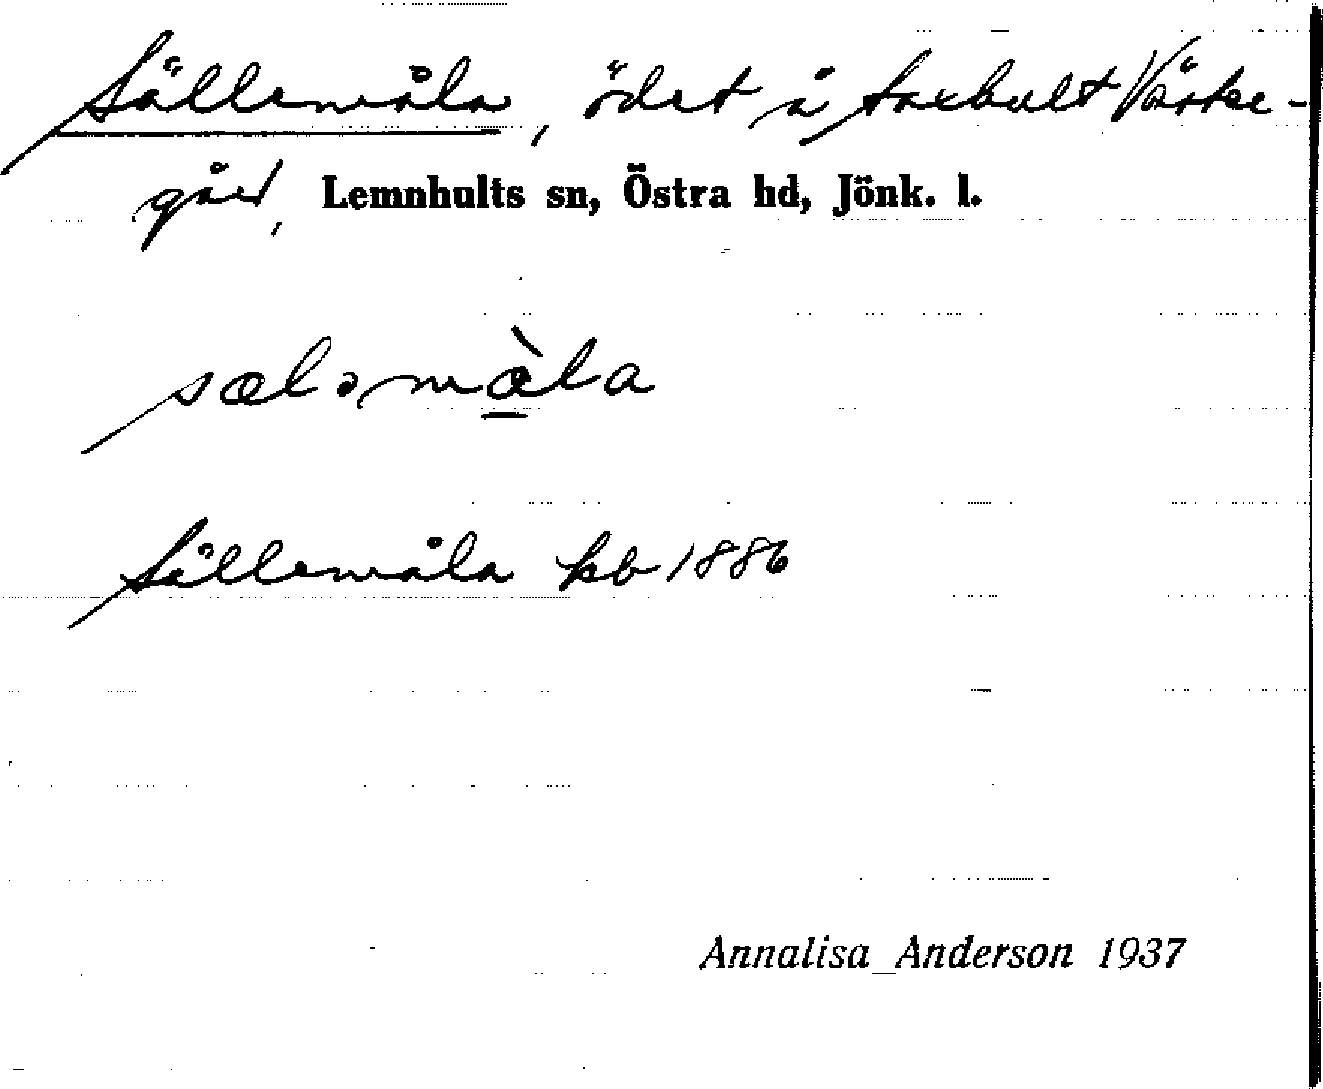 Sällemåla, ödet å Saxhult Väste-
gård, Lemnhults sn, Östra hd, Jönk. l.
sæləmàla
Sällemåla kb 1886
Annalisa Anderson 1937